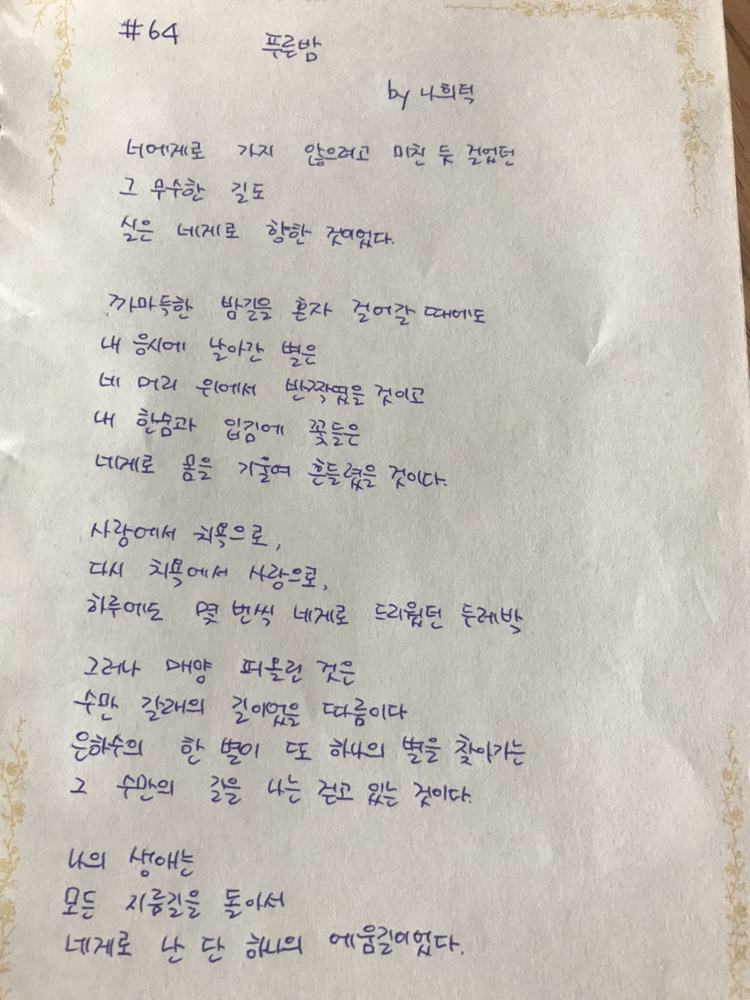 #64
푸른밤
by 나희덕
너에게로 가지 않으려고 미친 듯 걸었던
그 무수한 길도
실은 네게로 향한 것이었다.
까마득한 밤길을 혼자 걸어갈 때에도
내 응시에 날아간 별은
네 머리 위에서 반짝였을 것이고
내 한숨과 입김에 꽃들은
네게로 몸을 기울여 흔들렸을 것이다.
사랑에서 치욕으로,
다시 치욕에서 사랑으로,
하루에도 몇 번씩 네게로 드리웠던 두레박
그러나 매양 퍼올린 것은
수만 갈래의 길이었을 따름이다
은하수의 한 별이 또 하나의 별을 찾아가는
그 수만의 길을 나는 걷고 있는 것이다.
나의 생애는
모든 지름길을 돌아서
네게로 난 단 하나의 에움길이었다.